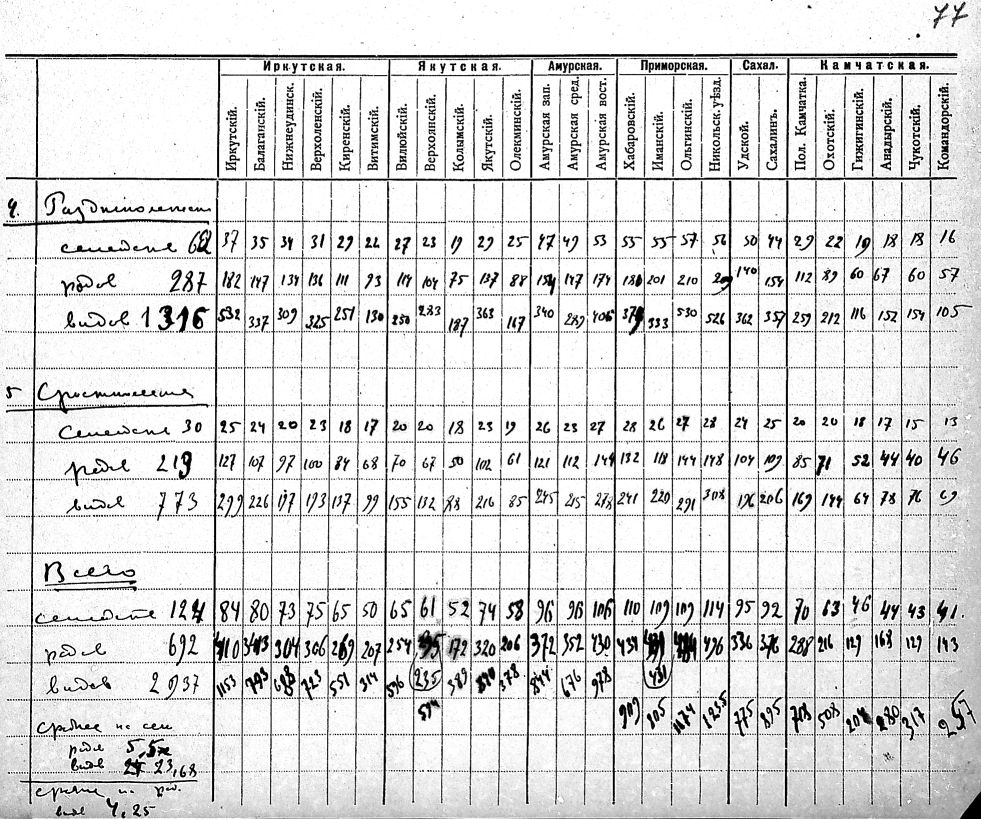 77
Иркутская. Якутская. Амурская. Приморская. Сахал. Камчатская.
Иркутскій. Балаганскій. Нижнеудинск. Верхоленскій. Киренскій. Витимскій. Вилюйскій. Верхоянскій. Колымскій. Якутскій. Олекминскій. Амурская зап. Амурская сред. Амурская вост. Хабаровскій. Иманскій. Ольгинскій. Никольск. уѣзд. Удской. Сахалинъ. Пол. Камчатка. Охотскій. Гижигинскій. Анадырскій. Чукотскій. Командорскій.
4. Раздельнолепестн
семейств 37 35 34 31 29 22 27 23 19 29 25 47 49 53 55 55 57 56 50 44 29 22 19 18 18 16
родов 287 182 147 134 136 111 93 114 104 75 137 88 154 147 174 180 201 210 140 154 112 89 60 67 60 57
видов 1316 532 337 309 325 251 130 250 283 187 363 167 340 289 406 379 333 530 526 362 357 259 212 116 152 154 105
5 Сростнолепестн
Семейств 30 25 24 20 23 18 17 20 20 18 23 19 26 23 27 28 26 27 28 24 25 20 20 18 17 15 13
родов 219 127 107 97 100 84 68 70 67 50 102 61 121 112 144 132 118 144 148 104 109 85 71 52 44 40 46
видов 773 299 226 197 193 137 99 155 132 88 216 85 245 215 278 241 220 291 308 196 206 169 144 64 78 76 69
Всего
семейств 124 84 80 73 75 65 50 65 61 52 74 58 96 96 106 110 109 109 114 95 92 70 63 46 44 43 41
родов 692 410 343 304 306 269 207 254 172 320 206 372 352 430 439 496 336 376 288 216 129 168 129 143
видов 2937 1153 793 698 723 551 314 596 235 389 378 844 676 978 431
594 909 805 1174 1235 775 895 708 508 208 280 317 257
среднее на сем
родов 5,5
видов 23,68
среднее на род.
видов 4,25